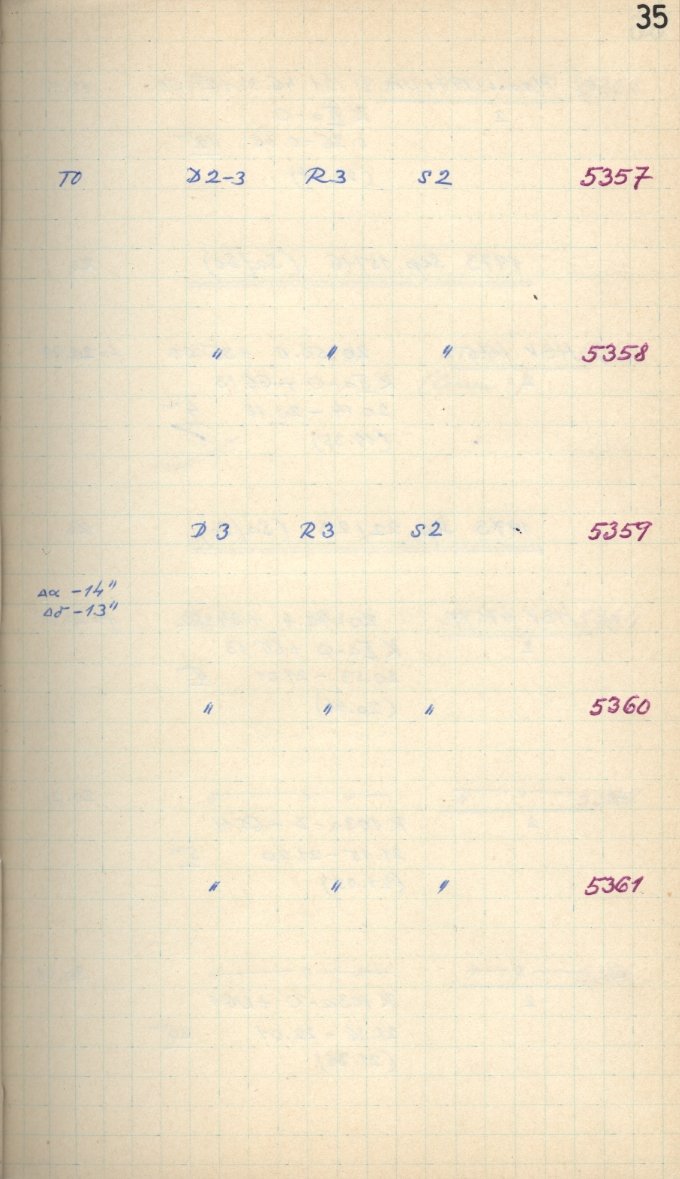 35
TO D2-3 R3 S2 5357
〃 〃 〃 5358
D3 R3 S2 5359
Δα -14"
Δδ -13"
〃 〃 〃 5360
〃 〃 〃 5361